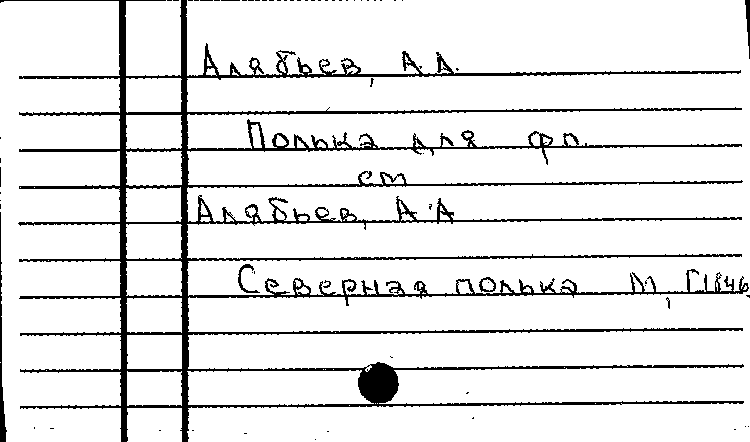 Алябьев, А.А.
Полька для фп.
см
Алябьев, А.А
Северная полька М, [1846